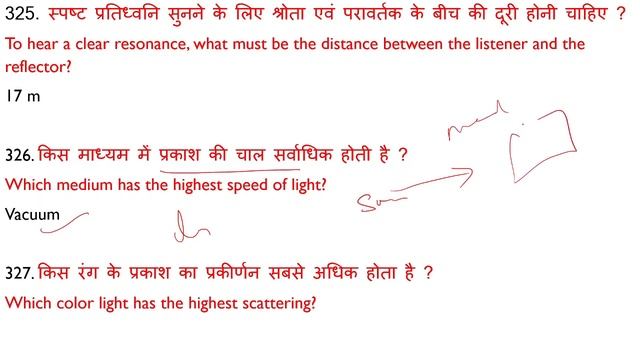 325. स्पष्ट प्रतिध्वनि सुनने के लिए श्रोता एवं परावर्तक के बीच की दूरी होनी चाहिए ?
To hear a clear resonance, what must be the distance between the listener and the
reflector?
17 m
326. किस माध्यम में प्रकाश की चाल सर्वाधिक होती है ?
Which medium has the highest speed of light?
Vacuum
327. किस रंग के प्रकाश का प्रकीर्णन सबसे अधिक होता है ?
Which color light has the highest scattering?